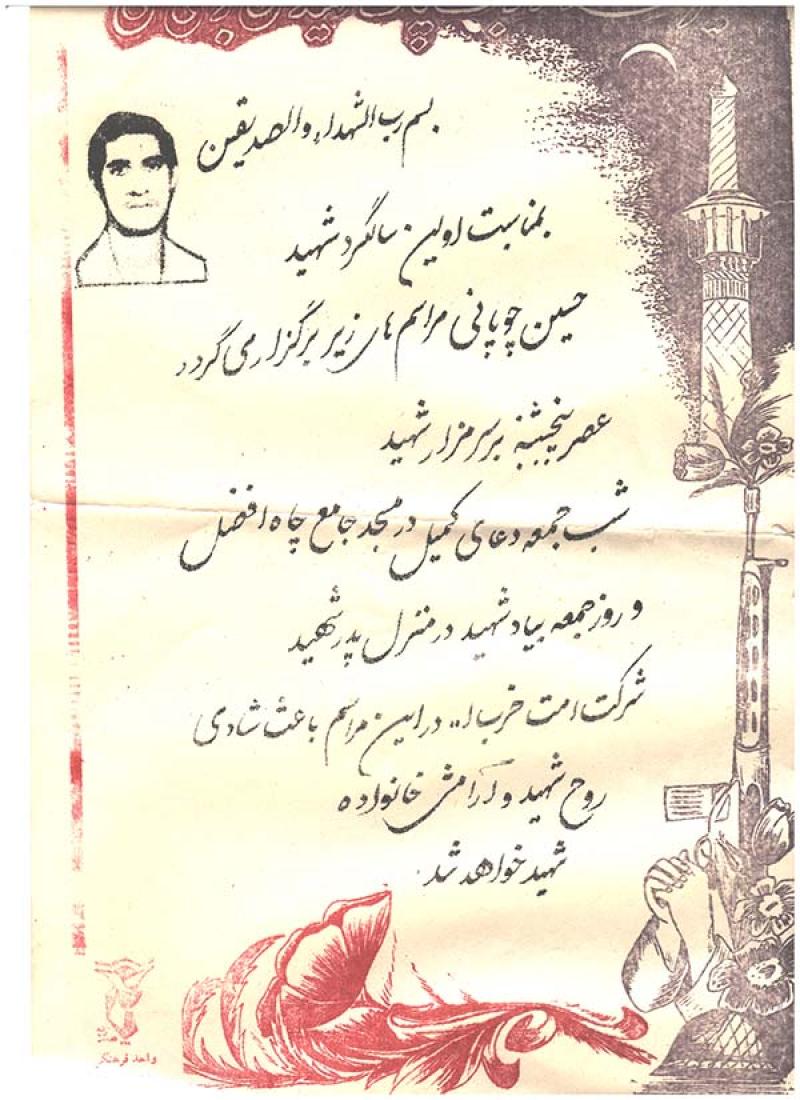 بسم رب الشهداء والصدیقین
بمناسبت اولین سالگرد شهید
حسین چوپانی مراسم های زیر برگزار می گردد
عصر پنجشنبه بر سر مزار شهید
شب جمعه دعای کمیل در مسجد جامع چاه افضل
و روز جمعه بیاد شهید در منزل پدر شهید
شرکت امت حزب ا.. در این مراسم باعث شادی
روح شهید و آرامش خانواده
شهید خواهد شد.
واحد فرهنگی